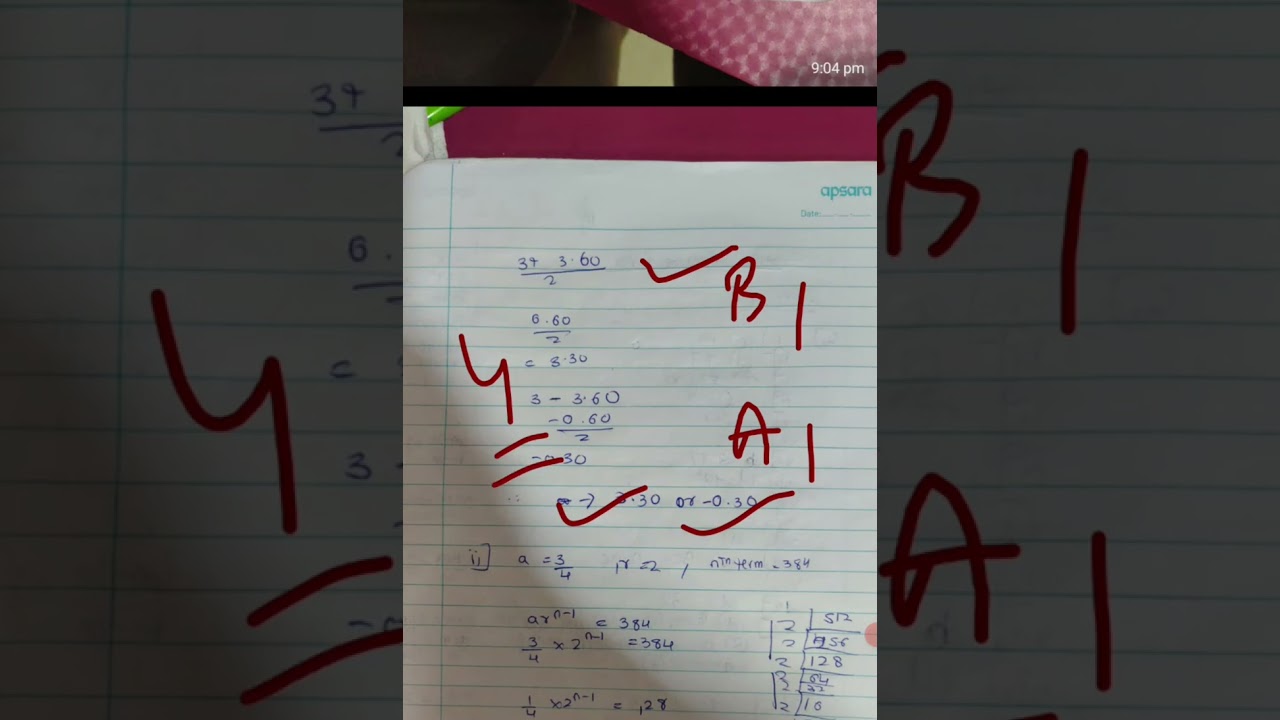 9:04 pm
apsara
Date:
3+ 3.60
2
B1
6.60
2
= 3.30
4
3 - 3.60
-0.60
2
A1
-0.30
→ 3.30 or -0.30
ii] a = 3/4 , r = 2 , nth term = 384
ar^n-1 = 384
3/4 × 2^n-1 = 384
1/4 × 2^n-1 = 128
2 | 512
2 | 256
2 | 128
2 | 64
2 | 32
2 | 16